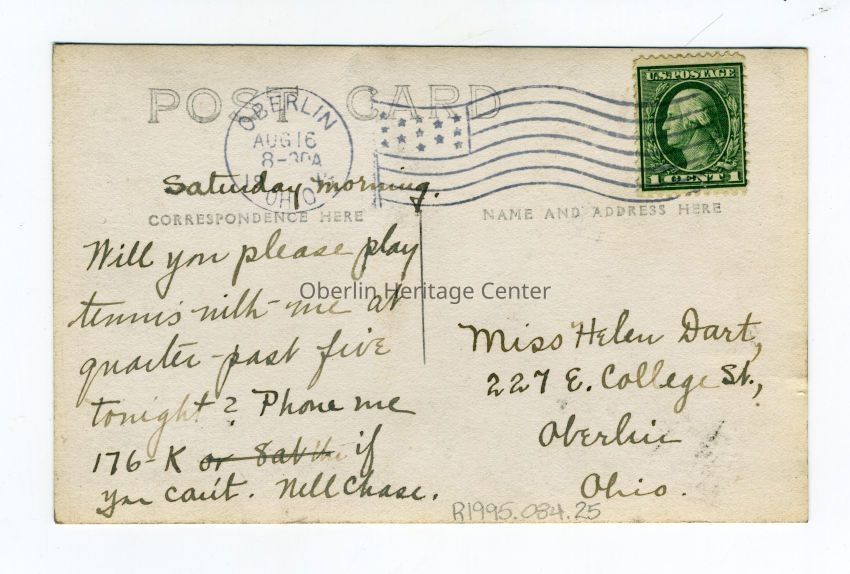 POST CARD
OBERLIN
AUG 16
8-30A
OHIO
U.S. POSTAGE
1 CENT 1
Saturday morning.
CORRESPONDENCE HERE
NAME AND ADDRESS HERE
Will you please play
tennis with me at
quarter past five
tonight? Phone me
176-K or if
you can't. Nell Chase.
Oberlin Heritage Center
Miss Helen Dart,
227 E. College St.,
Oberlin
Ohio.
R1995.084.25